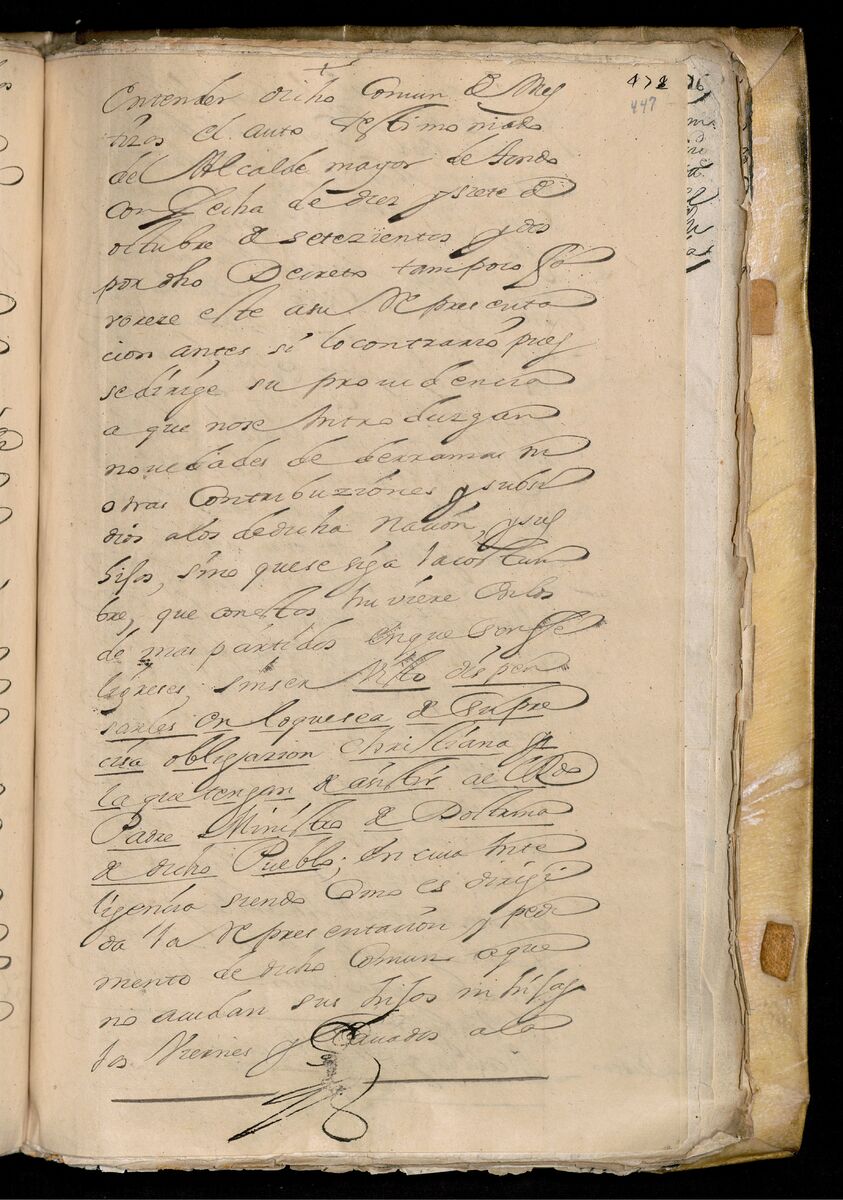 472
447
entender dicho Comun de Mes
tizos el auto testimoniado
del Alcalde mayor de
con fecha de diez y siete de
octubre de setezientos y dos
por dho Decreto tampoco fa
voreze este a su representa
cion antes si lo contrario pues
se dirige su providencia
a que no se introduzgan
novedades de derramas ni
otras Contribuziones y subsi
dios a los de dicha nacion, y sus
hijos, sino que se siga la costum
bre, que con estos huviere en los
de mas partidos en que son fe
ligreses, sin ser visto dispen
sarles en lo que sea de su pre
cisa obligazion Christiana
la que tengan de asistir al
Padre Ministro de Doctrina
de dicho Pueblo; en cuia inte
ligencia siendo como es dirigi
da la representacion y pedi
mento de dicho Comun a que
no acudan sus hijos ni hijas
los Viernes y Savados a la